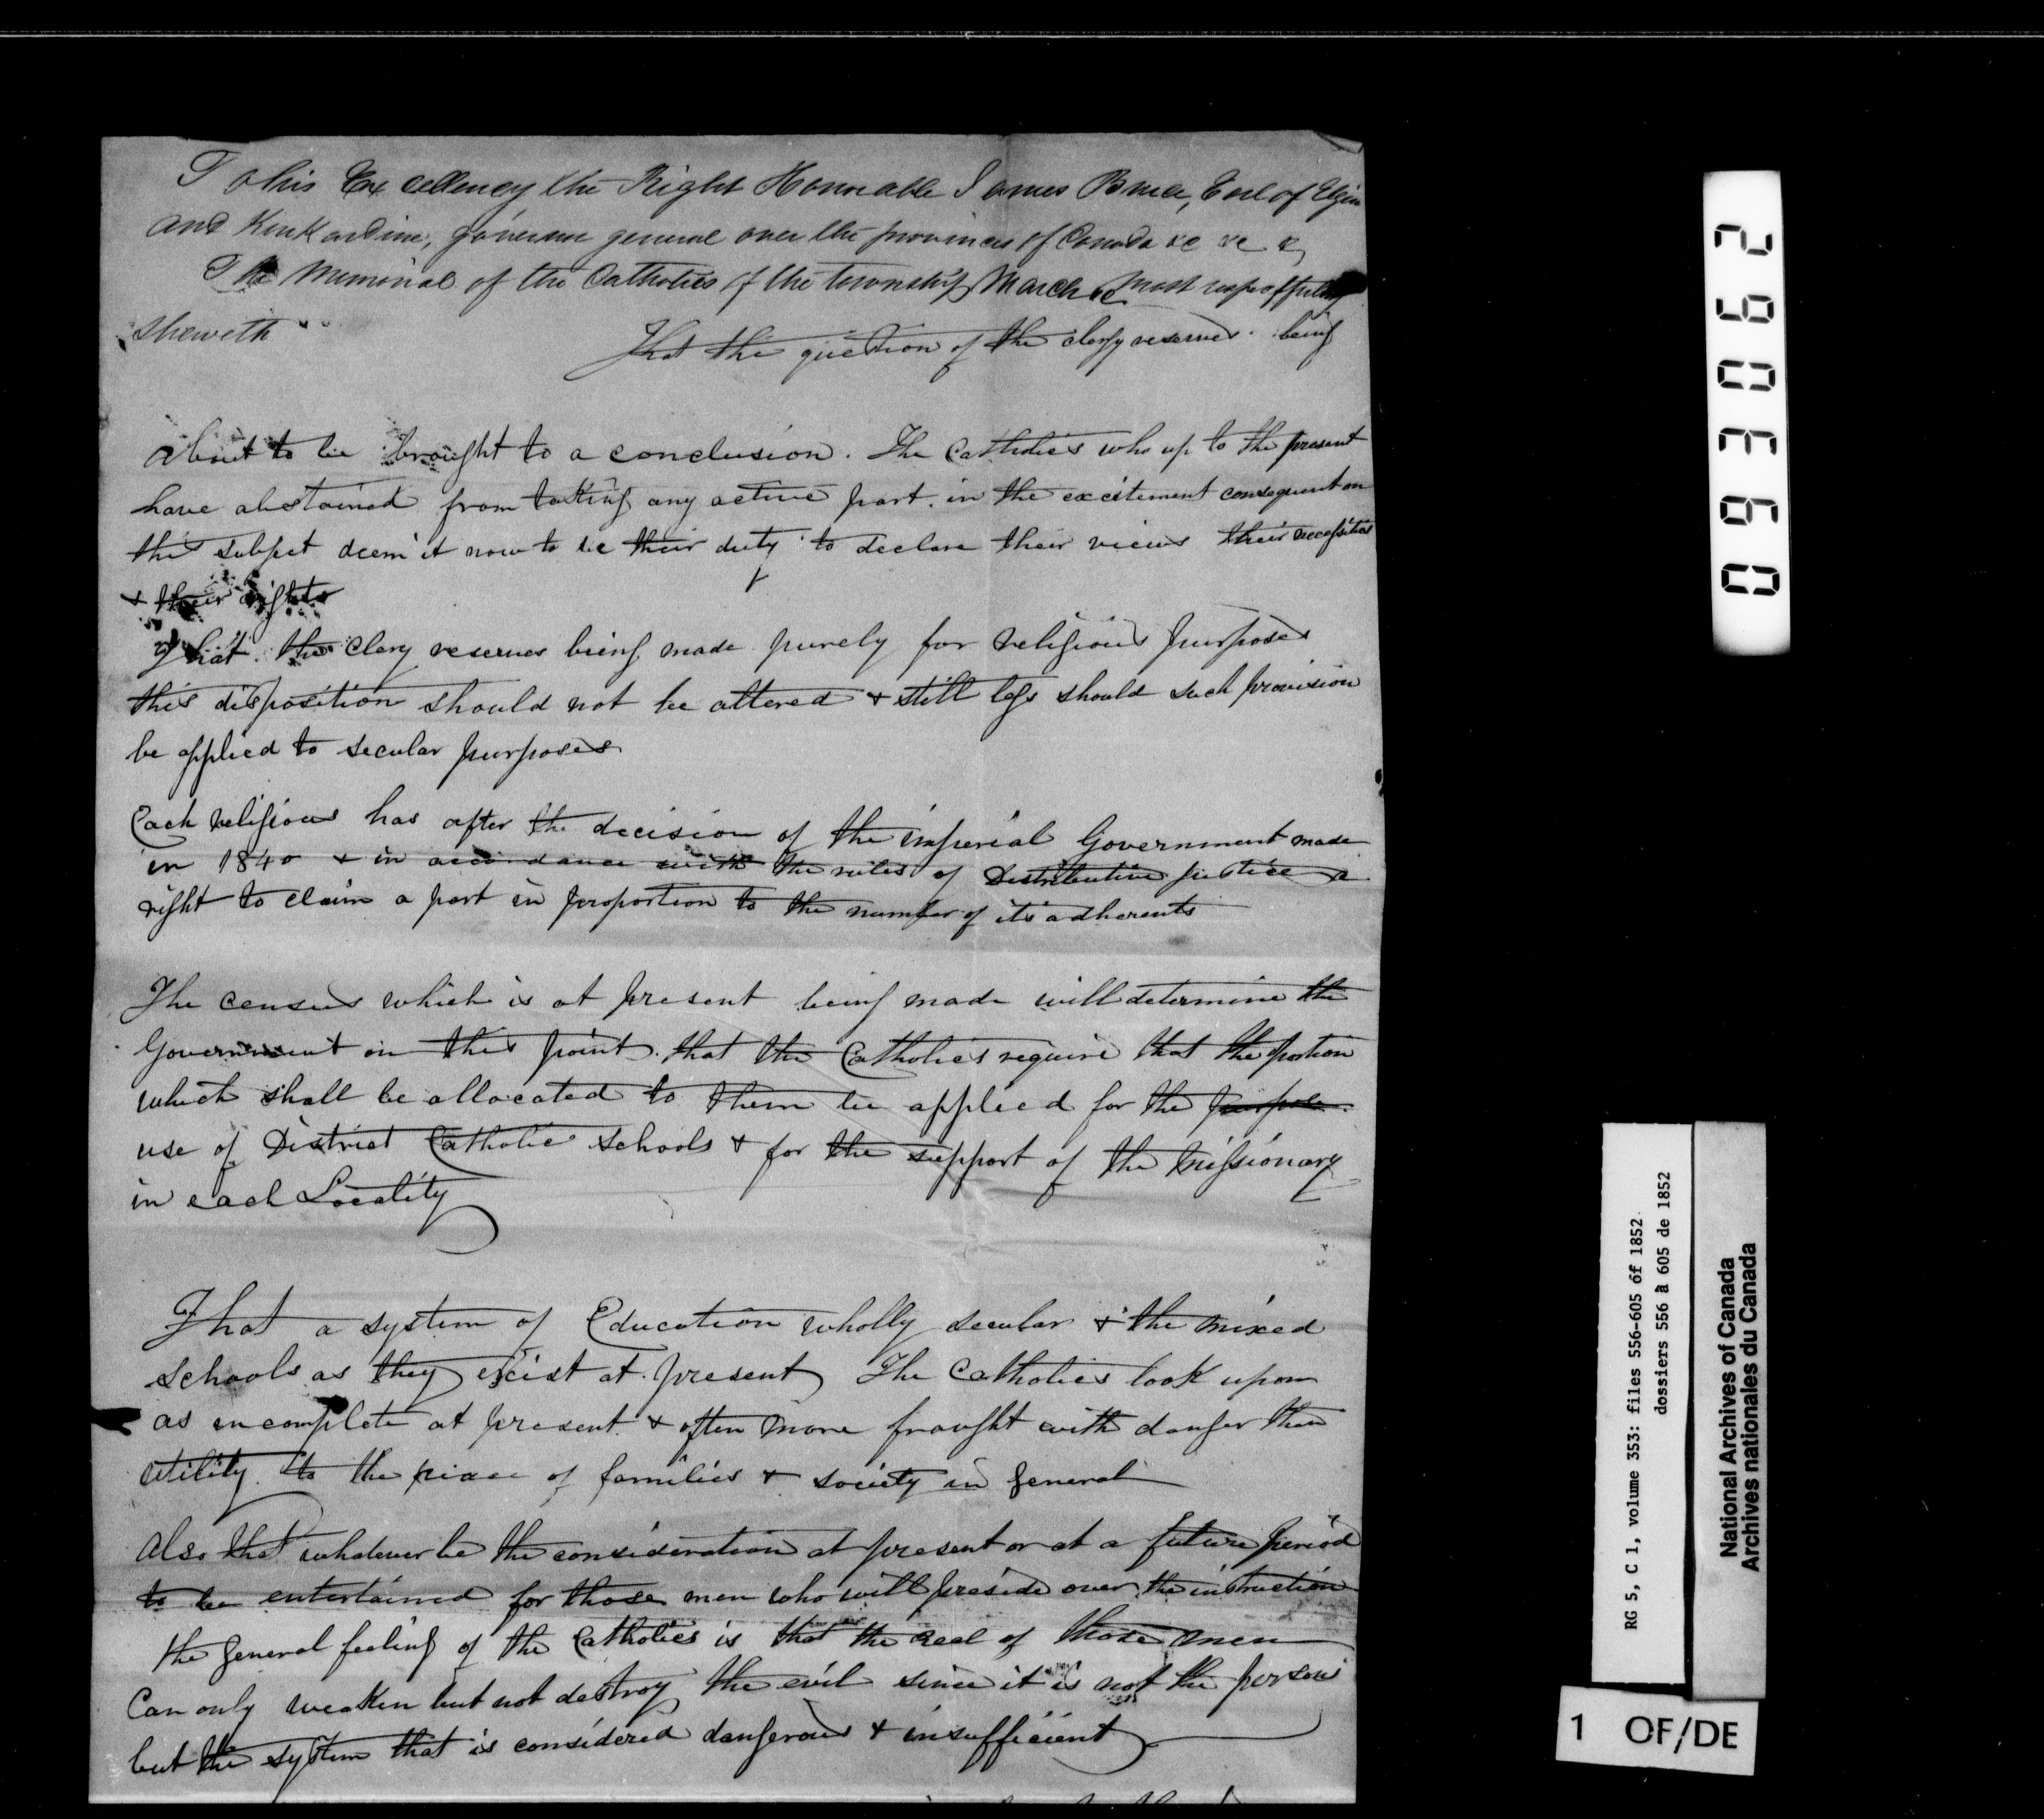 To his Excellency the Right Honorable James Bruce, Earl of Elgin
and Kinkardine, governor general over the provinces of Canada &c &c &c
The Memorial of the Catholics of the township March &c most respectfully
sheweth
That the question of the clergy reserves being
about to be brought to a conclusion. The Catholics who up to the present
have abstained from taking any active part in the excitement consequent on
this subject deem it now to be their duty to declare their views their necessities
& their rights
That the clergy reserves being made purely for religious purposes
this disposition should not be altered & still less should such provision
be applied to secular purposes
Each religious has after the decision of the imperial Government made
in 1840 & in accordance with the rules of Distributive justice a
right to claim a part in proportion to the number of its adherents
The census which is at present being made will determine the
Government on this point. that the Catholics require that the portion
which shall be allocated to them be applied for the purpose
use of District Catholic schools & for the support of the Missionary
in each Locality
That a system of Education wholly secular & the mixed
schools as they exist at present The Catholics look upon
as incomplete at present & often more fraught with danger than
utility to the peace of families & society in general
Also that whatever be the consideration at present or at a future period
to be entertained for those men who will preside over the instruction
the general feeling of the Catholics is that the zeal of those men
Can only weaken but not destroy the evil since it is not the persons
but the system that is considered dangerous & insufficient
093062
RG 5, C 1, volume 353: files 556-605 of 1852
dossiers 556 à 605 de 1852
National Archives of Canada
Archives nationales du Canada
1 OF/DE